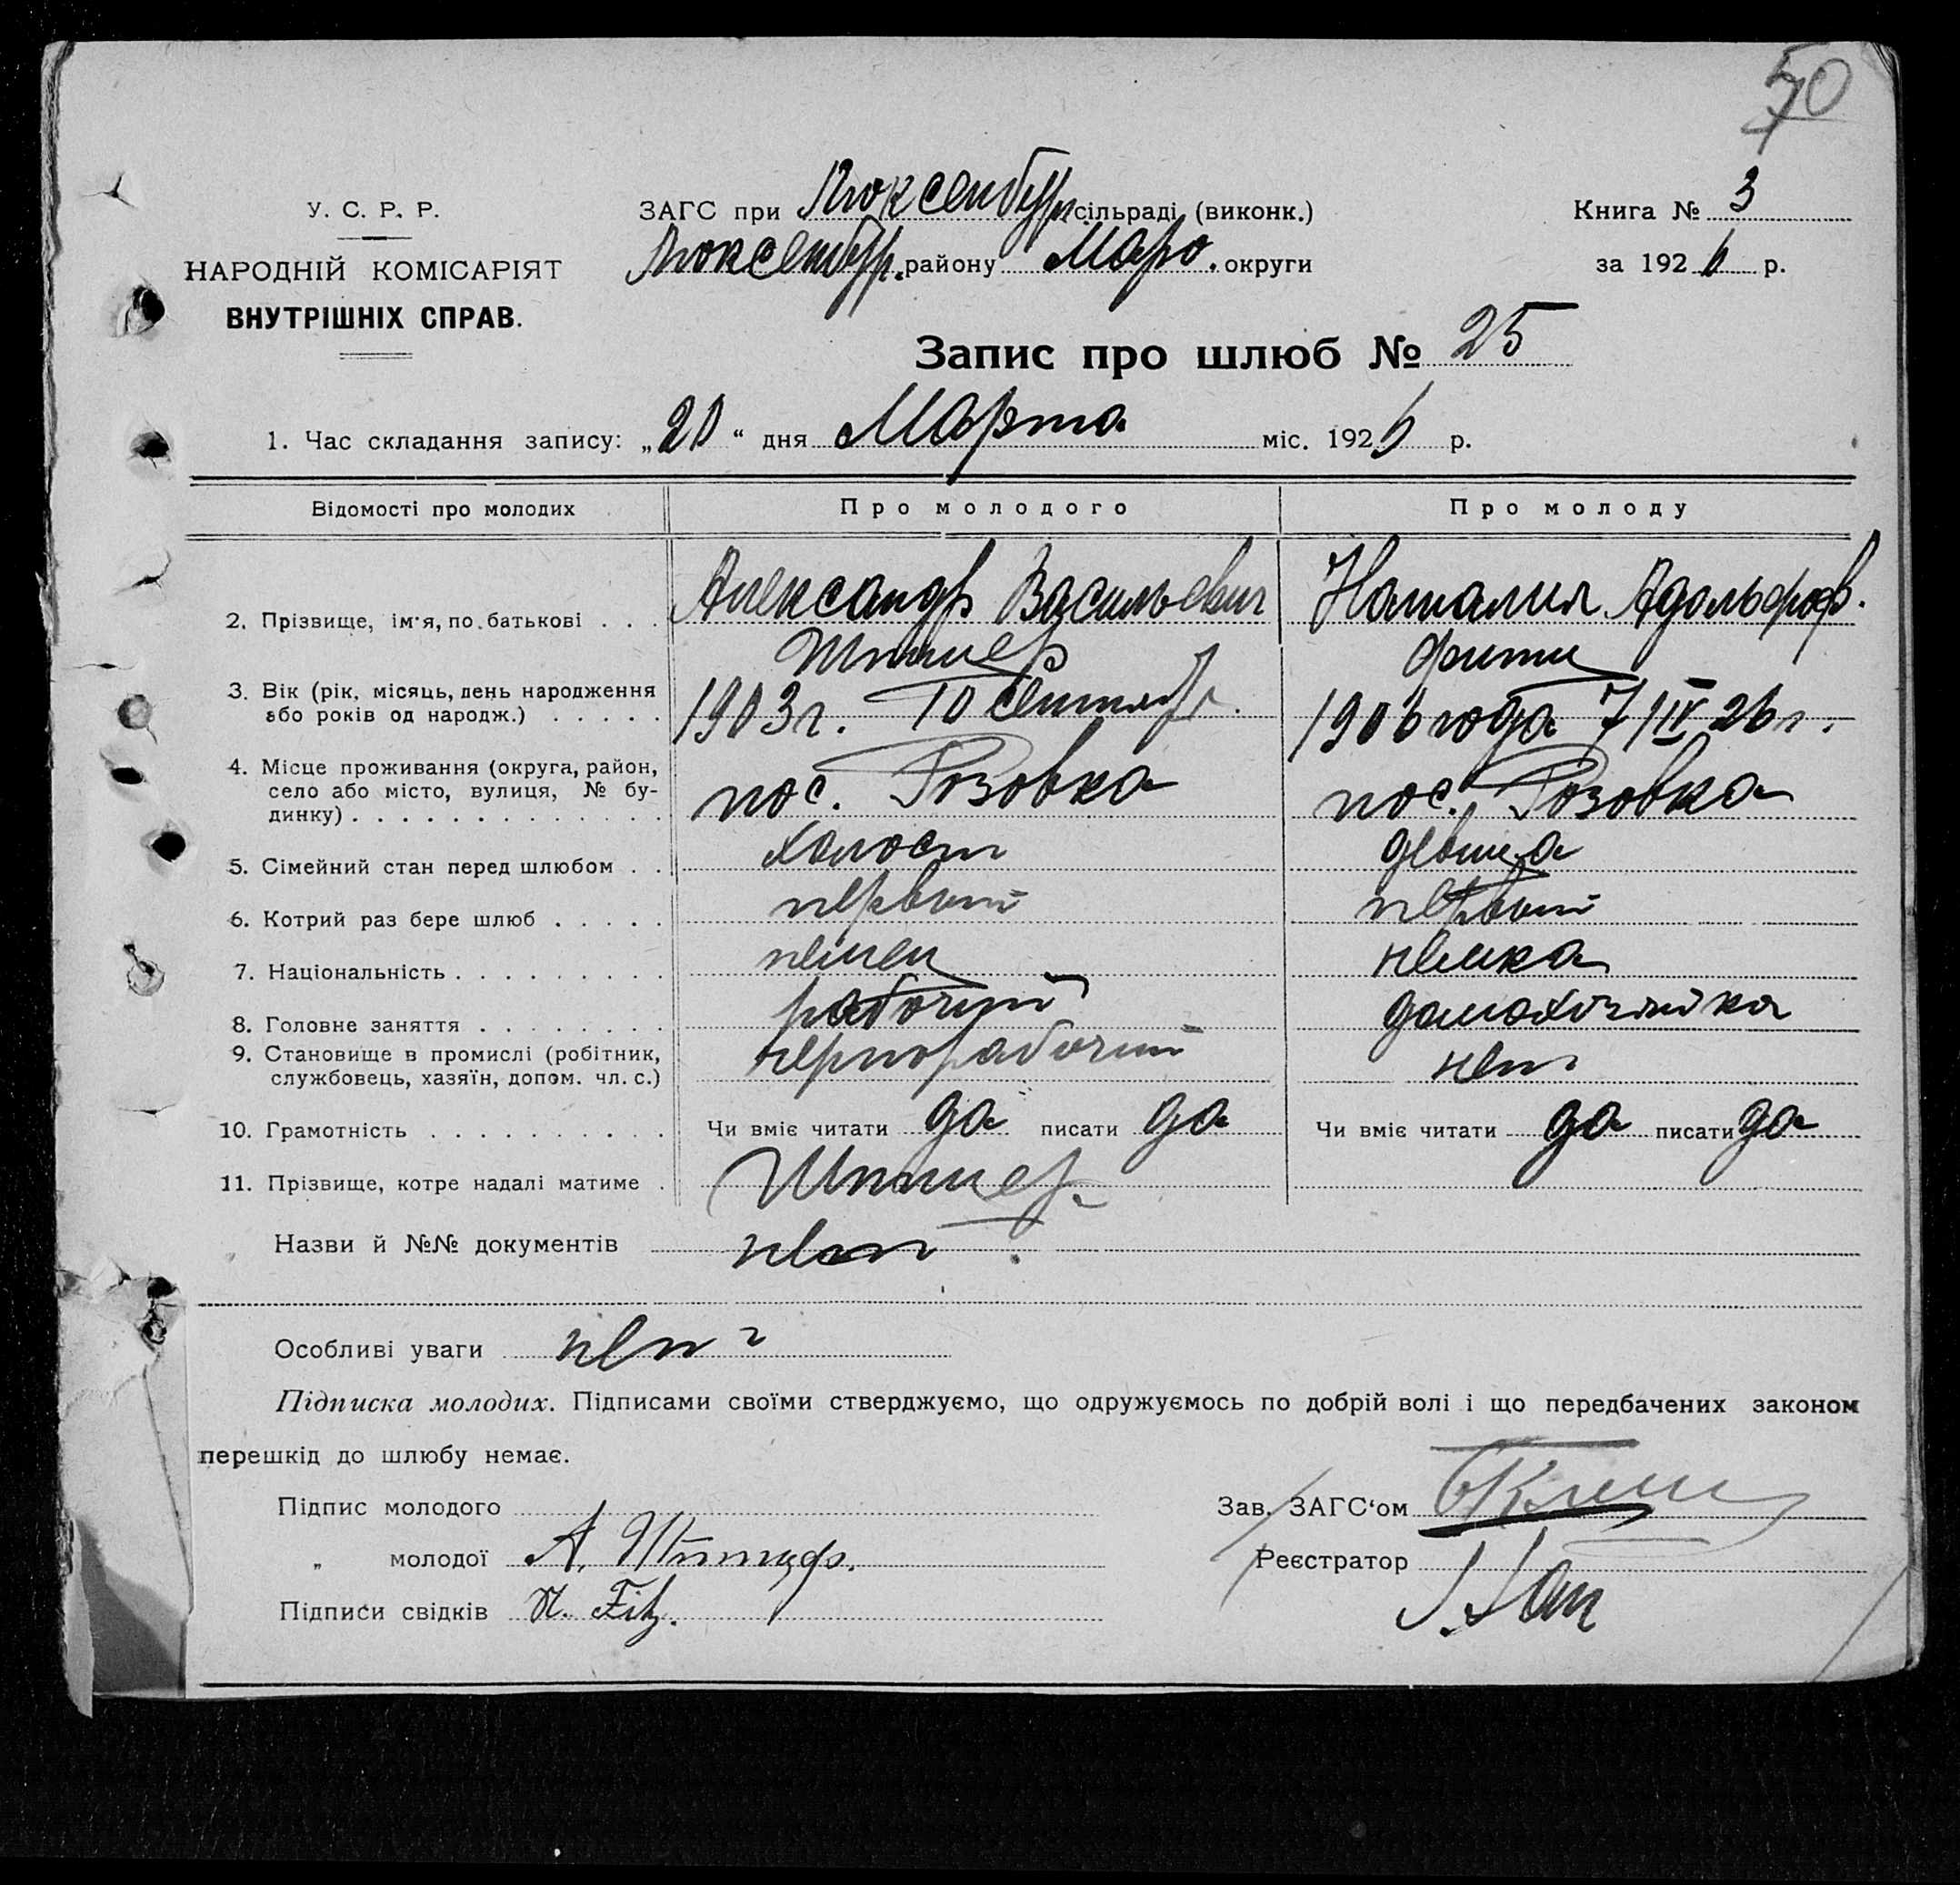 50
У. С. Р. Р.
НАРОДНІЙ КОМІСАРІЯТ
ВНУТРІШНІХ СПРАВ.
ЗАГС при Люксембург сільраді (виконк.)
Люксембур. району Маро. округи
Книга № 3
за 1926 р.
Запис про шлюб № 25
1. Час складання запису: „20“ дня Марта міс. 1926 р.
Відомості про молодих Про молодого Про молоду
2. Прізвище, ім'я, по батькові . . . Александр Васильевич Наталия Адольфов.
Фитц
3. Вік (рік, місяць, день народження
або років од народж.) . . . . . 1903 г. 10 Сентябр. 1906 года 7/IV 26 г.
4. Місце проживання (округа, район,
село або місто, вулиця, № бу-
динку) . . . . . . . . . . . . . пос. Розовка пос. Розовка
5. Сімейний стан перед шлюбом . . холост девица
6. Котрий раз бере шлюб . . . . . первый первый
7. Національність . . . . . . . . . немец немка
8. Головне заняття . . . . . . . . рабочий домохозяйка
9. Становище в промислі (робітник,
службовець, хазяїн, допом. чл. с.) чернорабочий нет
10. Грамотність . . . . . . . . . . Чи вміє читати да писати да Чи вміє читати да писати да
11. Прізвище, котре надалі матиме .
Назви й №№ документів нет
Особливі уваги нет
Підписка молодих. Підписами своїми стверджуємо, що одружуємось по добрій волі і що передбачених законом
перешкід до шлюбу немає.
Підпис молодого
Зав. ЗАГС'ом
„ молодої А.
Реєстратор
Підписи свідків N. Fitz.